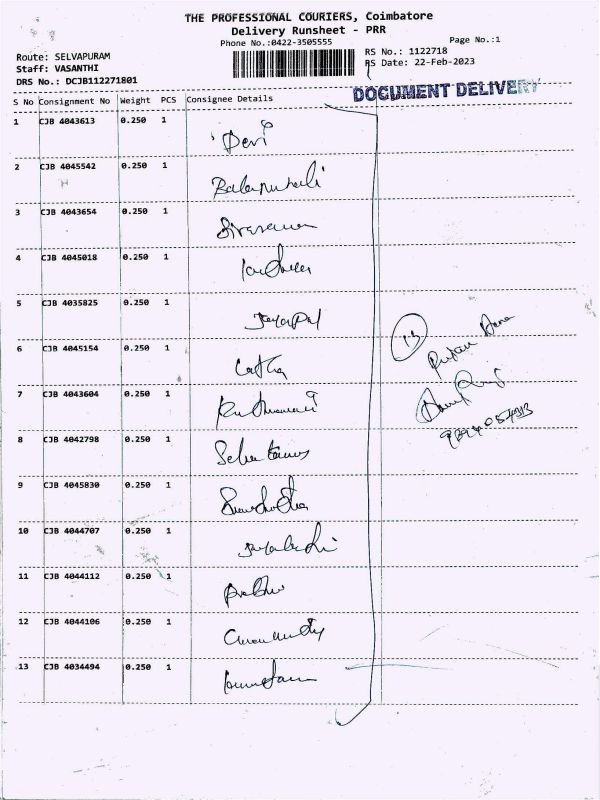 THE PROFESSIONAL COURIERS, Coimbatore
Delivery Runsheet - PRR
Phone No.:0422-3505555
Page No.:1
Route: SELVAPURAM
RS No.: 1122718
Staff: VASANTHI
RS Date: 22-Feb-2023
DRS No.: DCJB112271801
DOCUMENT DELIVERY
S No Consignment No Weight PCS Consignee Details
1 CJB 4043613 0.250 1 Devi
2 CJB 4045542 0.250 1
3 CJB 4043654 0.250 1
4 CJB 4045018 0.250 1
5 CJB 4035825 0.250 1 Jeyapal
6 CJB 4045154 0.250 1 Latha
7 CJB 4043604 0.250 1
8 CJB 4042798 0.250 1
9 CJB 4045830 0.250 1
10 CJB 4044707 0.250 1
11 CJB 4044112 0.250 1 Prabhu
12 CJB 4044106 0.250 1
13 CJB 4034494 0.250 1
13